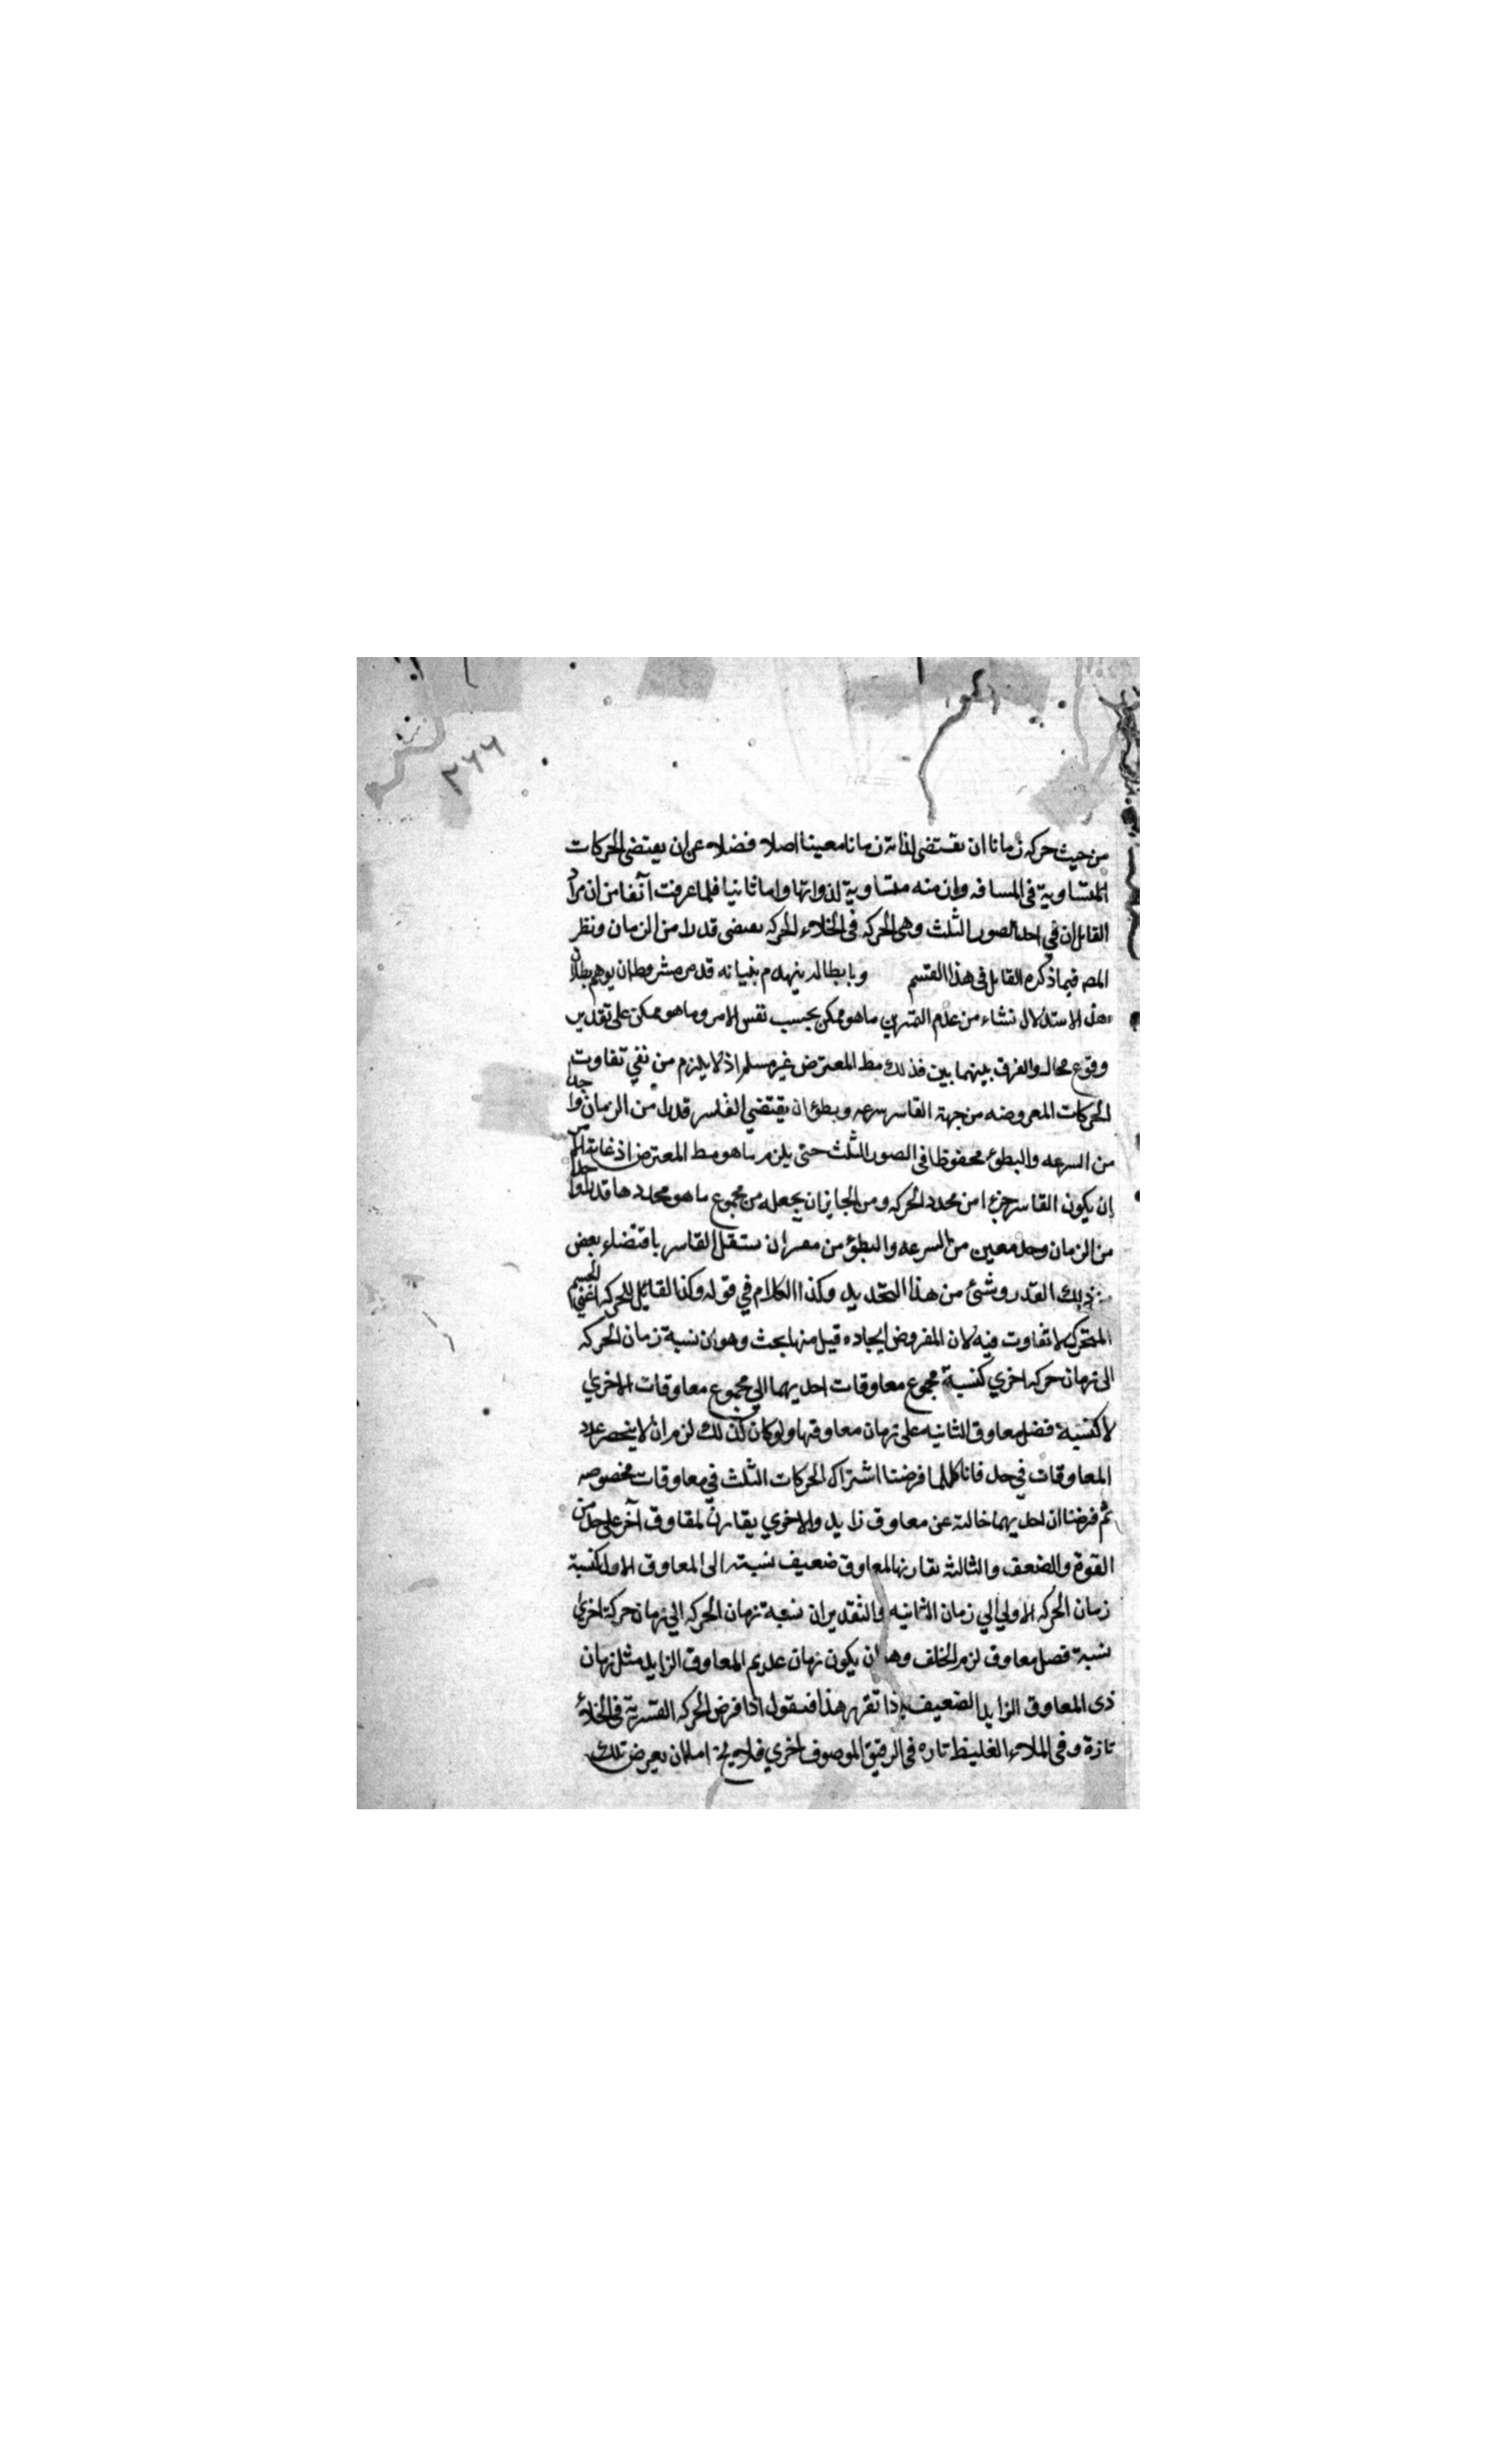 ٢٦٦
من حيث حركه زمانا ان يقتضى لذاته زمانا معينا اصلا فضلا عن ان يقتضى الحركات
المتساوية فى المسافه وازمنه متساوية لذواتها واما ثانيا فلما عرفت آنفا من ان مراد
القائل ان في احد الصور الثلث وهى الحركه فى الخلاء الحركه يقتضى قدرا من الزمان ونظر
المص فيما ذكره القايل فى هذا القسم وبابطاله ينهدم بنيانه قدس سره وما ان يوهم بطلان
هذا الاستدلال نشاء من عدم التمييز ما هو ممكن بحسب نفس الامر وما هو ممكن على تقدير
وقوع محال والفرق بينهما بين فذلك مط المعترض غير مسلم اذ لا يلزم من نفي تفاوت
الحركات المعروضه من جهة القاسر سرعه وبطؤ ان يقتضي القاسر قدرا من الزمان وا حدا
من السرعه والبطؤ محفوظا فى الصور الثلث حتى يلزم ما هو مط المعترض اذ غايته
ان يكون القاسر جزءا من محدد الحركه ومن الجايز ان يجعله من مجموع ما هو محددها قدر
من الزمان وحد معين من السرعه والبطؤ من غير ان يستقل القاسر باقتضاء بعض
ذلك القدر وشئ من هذا التحديد وكذا الكلام في قوله وكذا القابل للحركه اعني الجسم
المتحرك لا تفاوت فيه لان المفروض ايجاده قيل منها بحث وهو ان نسبة زمان الحركه
الى زمان حركه اخري كنسبة مجموع معاوقات احديهما الي مجموع معاوقات الاخري
لا كنسبة فضل معاوق الثانيه على زمان معاوقها ولو كان كذلك لزم ان لا ينحصر عدد
المعاوقات في حد فانا كلما فرضنا اشتراك الحركات الثلث في معاوقات مخصوصه
ثم فرضنا ان احديهما خالية عن معاوق زايد والاخري يقارن لمقاوق آخر على حد من
القوة والضعف والثالثه نقارنها لمعاوق ضعيف نسبته الى المعاوق الاول كنسبة
زمان الحركه الاولي الي زمان الثانيه والتقدير ان نسبة زمان الحركه الي زمان حركة اخري
نسبة فضل معاوق لزم الخلف وهو ان يكون زمان عديم المعاوق الزايد مثل زمان
ذى المعاوق الزايد الضعيف اذا تقرر هذا فنقول اذا فرض الحركه القسرية فى الخلاء
تازة وفى الملاء الغليظ تاره فى الرقيق الموصوف اخري فلا يخ اما ان يعرض تلك